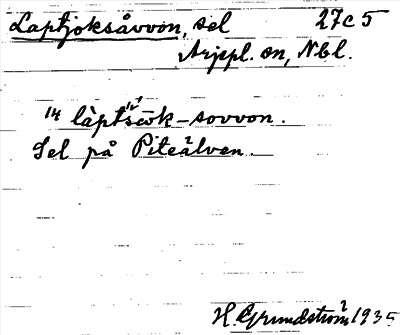 Laptjoksåvvon, sel 27c5
Arjepl. sn, Nbl.
14 làptsωk-sovvon.
Sel på Piteälven.
H. Grundström 1935